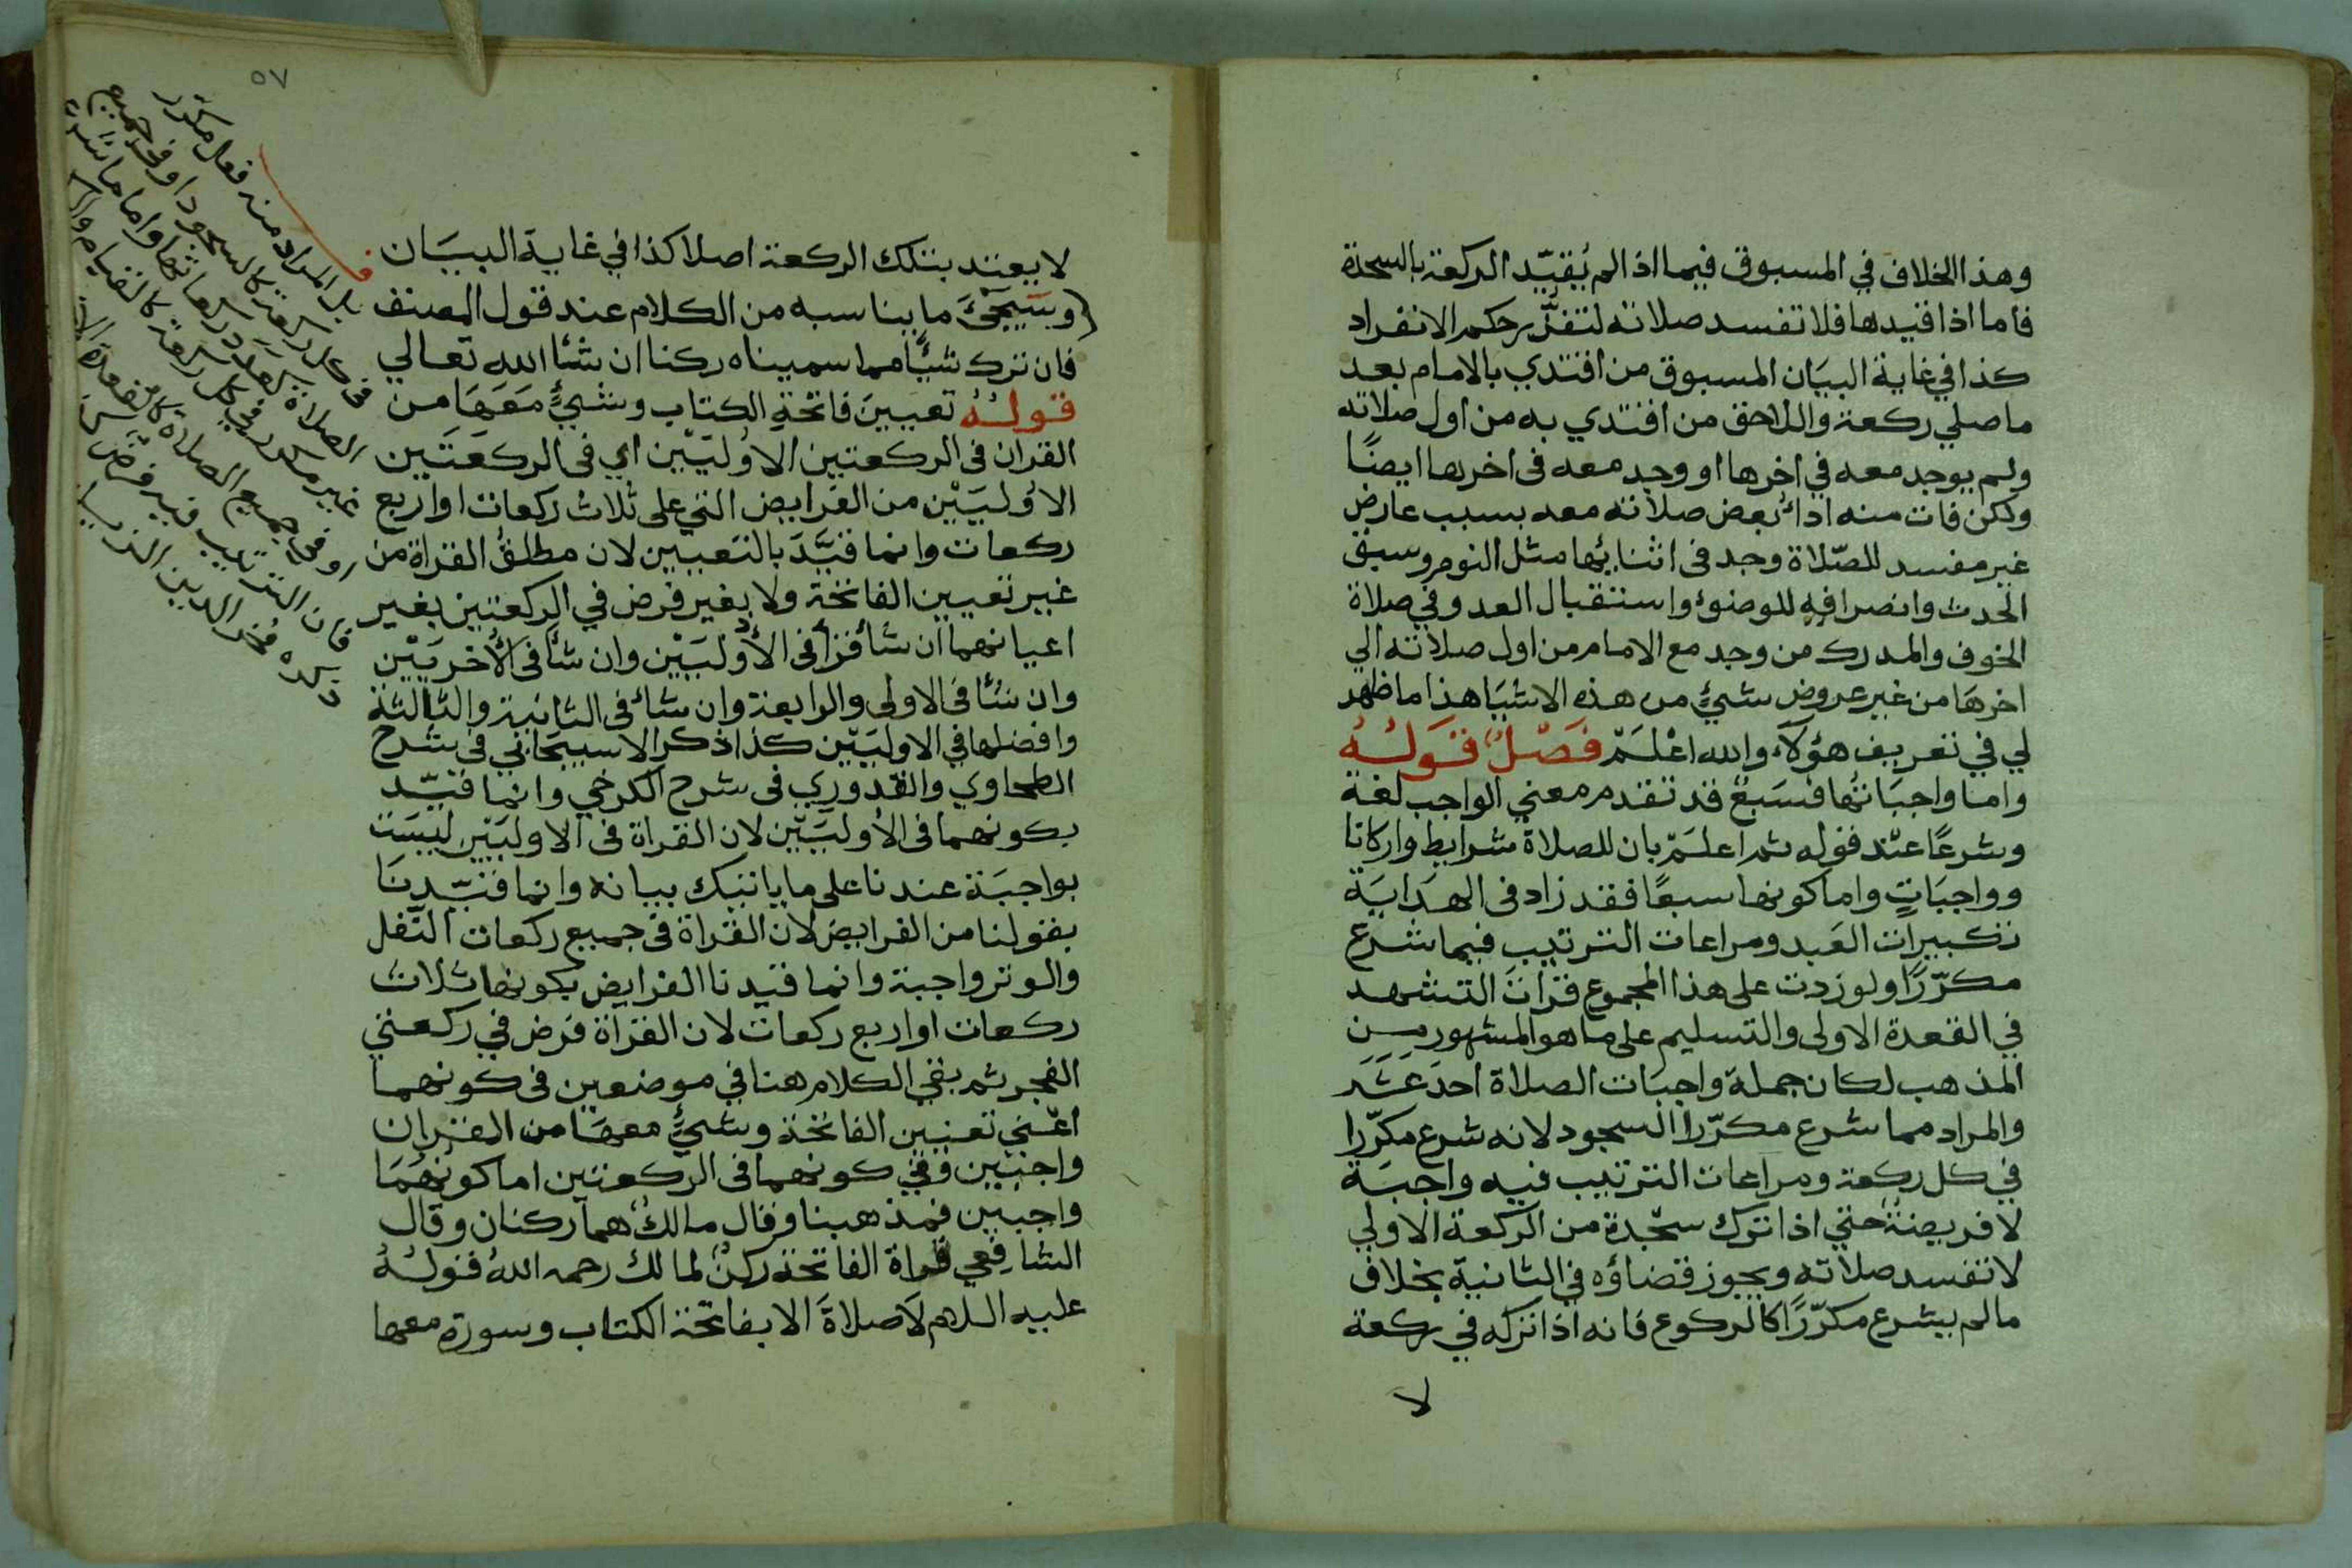 وهذا الخلاف في المسبوق فيما اذا لم يُقيّد الركعة بالسجدة
فاما اذا قيدها فلا تفسد صلاته لتقرّر حكم الانفراد
كذا في غاية البيَان المسبوق من اقتدي بالامام بعد
ما صلي ركعة واللاحق من اقتدي به من اول صلاته
ولم يوجد معه في اخرها او وجد معه فى اخرها ايضًا
ولكن فات منه اداءُ بعض صلاته معه بسبب عارض
غير مفسد للصّلاة وجد فى اثنائها مثل النوم وسبق
الحدث وانصرافه للوضوء واستقبال العدو في صلاة
الخوف والمدرك من وجد مع الامام من اول صلاته الي
اخرهَا من غير عروض شيءٍ من هذه الاشيَا هذا ما ظهر
لي في تعريف هؤلآء والله اعْلَمْ فَصْلٌ قَولُهُ
واما واجبَاتُها فسَبْعٌ قد تقدم معني الواجب لغة
وشرعًا عنْد قوله ثم اعلَمْ بان للصلاة شرايط واركانا
وواجبَاتٍ واما كونها سبعًا فقد زاد فى الهدَايَة
تكبيرات العَيد ومراعات الترتيب فيما شرع
مكرّرًا ولو زدت على هذا المجموع قرات التشهد
في القعدة الاولى والتسليم على ما هو المشهور من
المذهب لكان جملة واجبَات الصلاة احدَ عَشَر
والمراد مما شرع مكرّرا السجود لانه شرع مكرّرا
في كل ركعة ومراعات الترتيب فيه واجبَة
لا فريضة حتي اذا ترك سجْدة من الركعة الاولي
لا تفسد صلاته ويجوز قضاؤه في الثانية بخلاف
ما لم يشرع مكرّرًا كالركوع فانه اذا تركه في ركعة
لا
٥٧
لا يعتد بتلك الركعة اصلا كذا في غاية البيَان
وسَيجْئُ ما يناسبه من الكلام عند قول المصنف
فان ترك شيًا مما سميناه ركنا ان شا الله تعالي
قولُهُ تعيينَ فاتحةِ الكتاب وشيءٍ مَعَهَا من
القران فى الركعتين الاُوليَيْن اي فى الركعَتَين
الاُوليَيْن من الفرايض التي على ثلاث ركعات او اربع
ركعات وانما قيَّدَ بالتعيين لان مطلقُ القراة من
غير تعيين الفاتحة ولا بغير فرض في الركعتين بغير
اعيانهما ان شا قرأ فى الأُوليَيْن وان شا فى الأخريَيْن
وان شا فى الاولى والرابعة وان شاء فى الثانية والثالثة
وافضلها في الاوليَيْن كذا ذكر الاسبيجَابي فى شرح
الطحاوي والقدوري فى شرح الكرخي وانما قيّد
بكونهما فى الأوليَيْن لان القراة فى الاوليَيْن ليسَت
بواجبَة عندنا على ما ياتيك بيانه وانما قيّدنَا
بقولنا من الفرايض لان القراة فى جميع ركعات النّفل
والوتر واجبة وانما قيدنا الفرايض بكونها ثلاث
ركعات او اربع ركعات لان القراة فرض في ركعتي
الفجر ثم بقي الكلام هنا في موضعين فى كونهما
اعْني تعيين الفاتحة وشيءٍ معهَا من القران
واجبَين وفي كونهما فى الركعتين اما كونُهُمَا
واجبين فمذهبنا وقال مالكٌ هما ركنان وقال
الشافِعي قراة الفاتحة ركنٌ لمالك رحمه اللهُ قولُهُ
عليه السلام لَا صلاةَ الا بفاتحة الكتاب وسورة معها
بل المراد منه فعل مكرر
فى كل ركعة كالسجود او فى جميع
الصلاة كعدد ركعاتها واما ما شرع
غير مكرر في كل ركعة كالقيام والركوع
او فى جميع الصلاة كالقعدة الاخيرة
فان الترتيب فيه فرض
ذكره فخر الدين الزيلعي